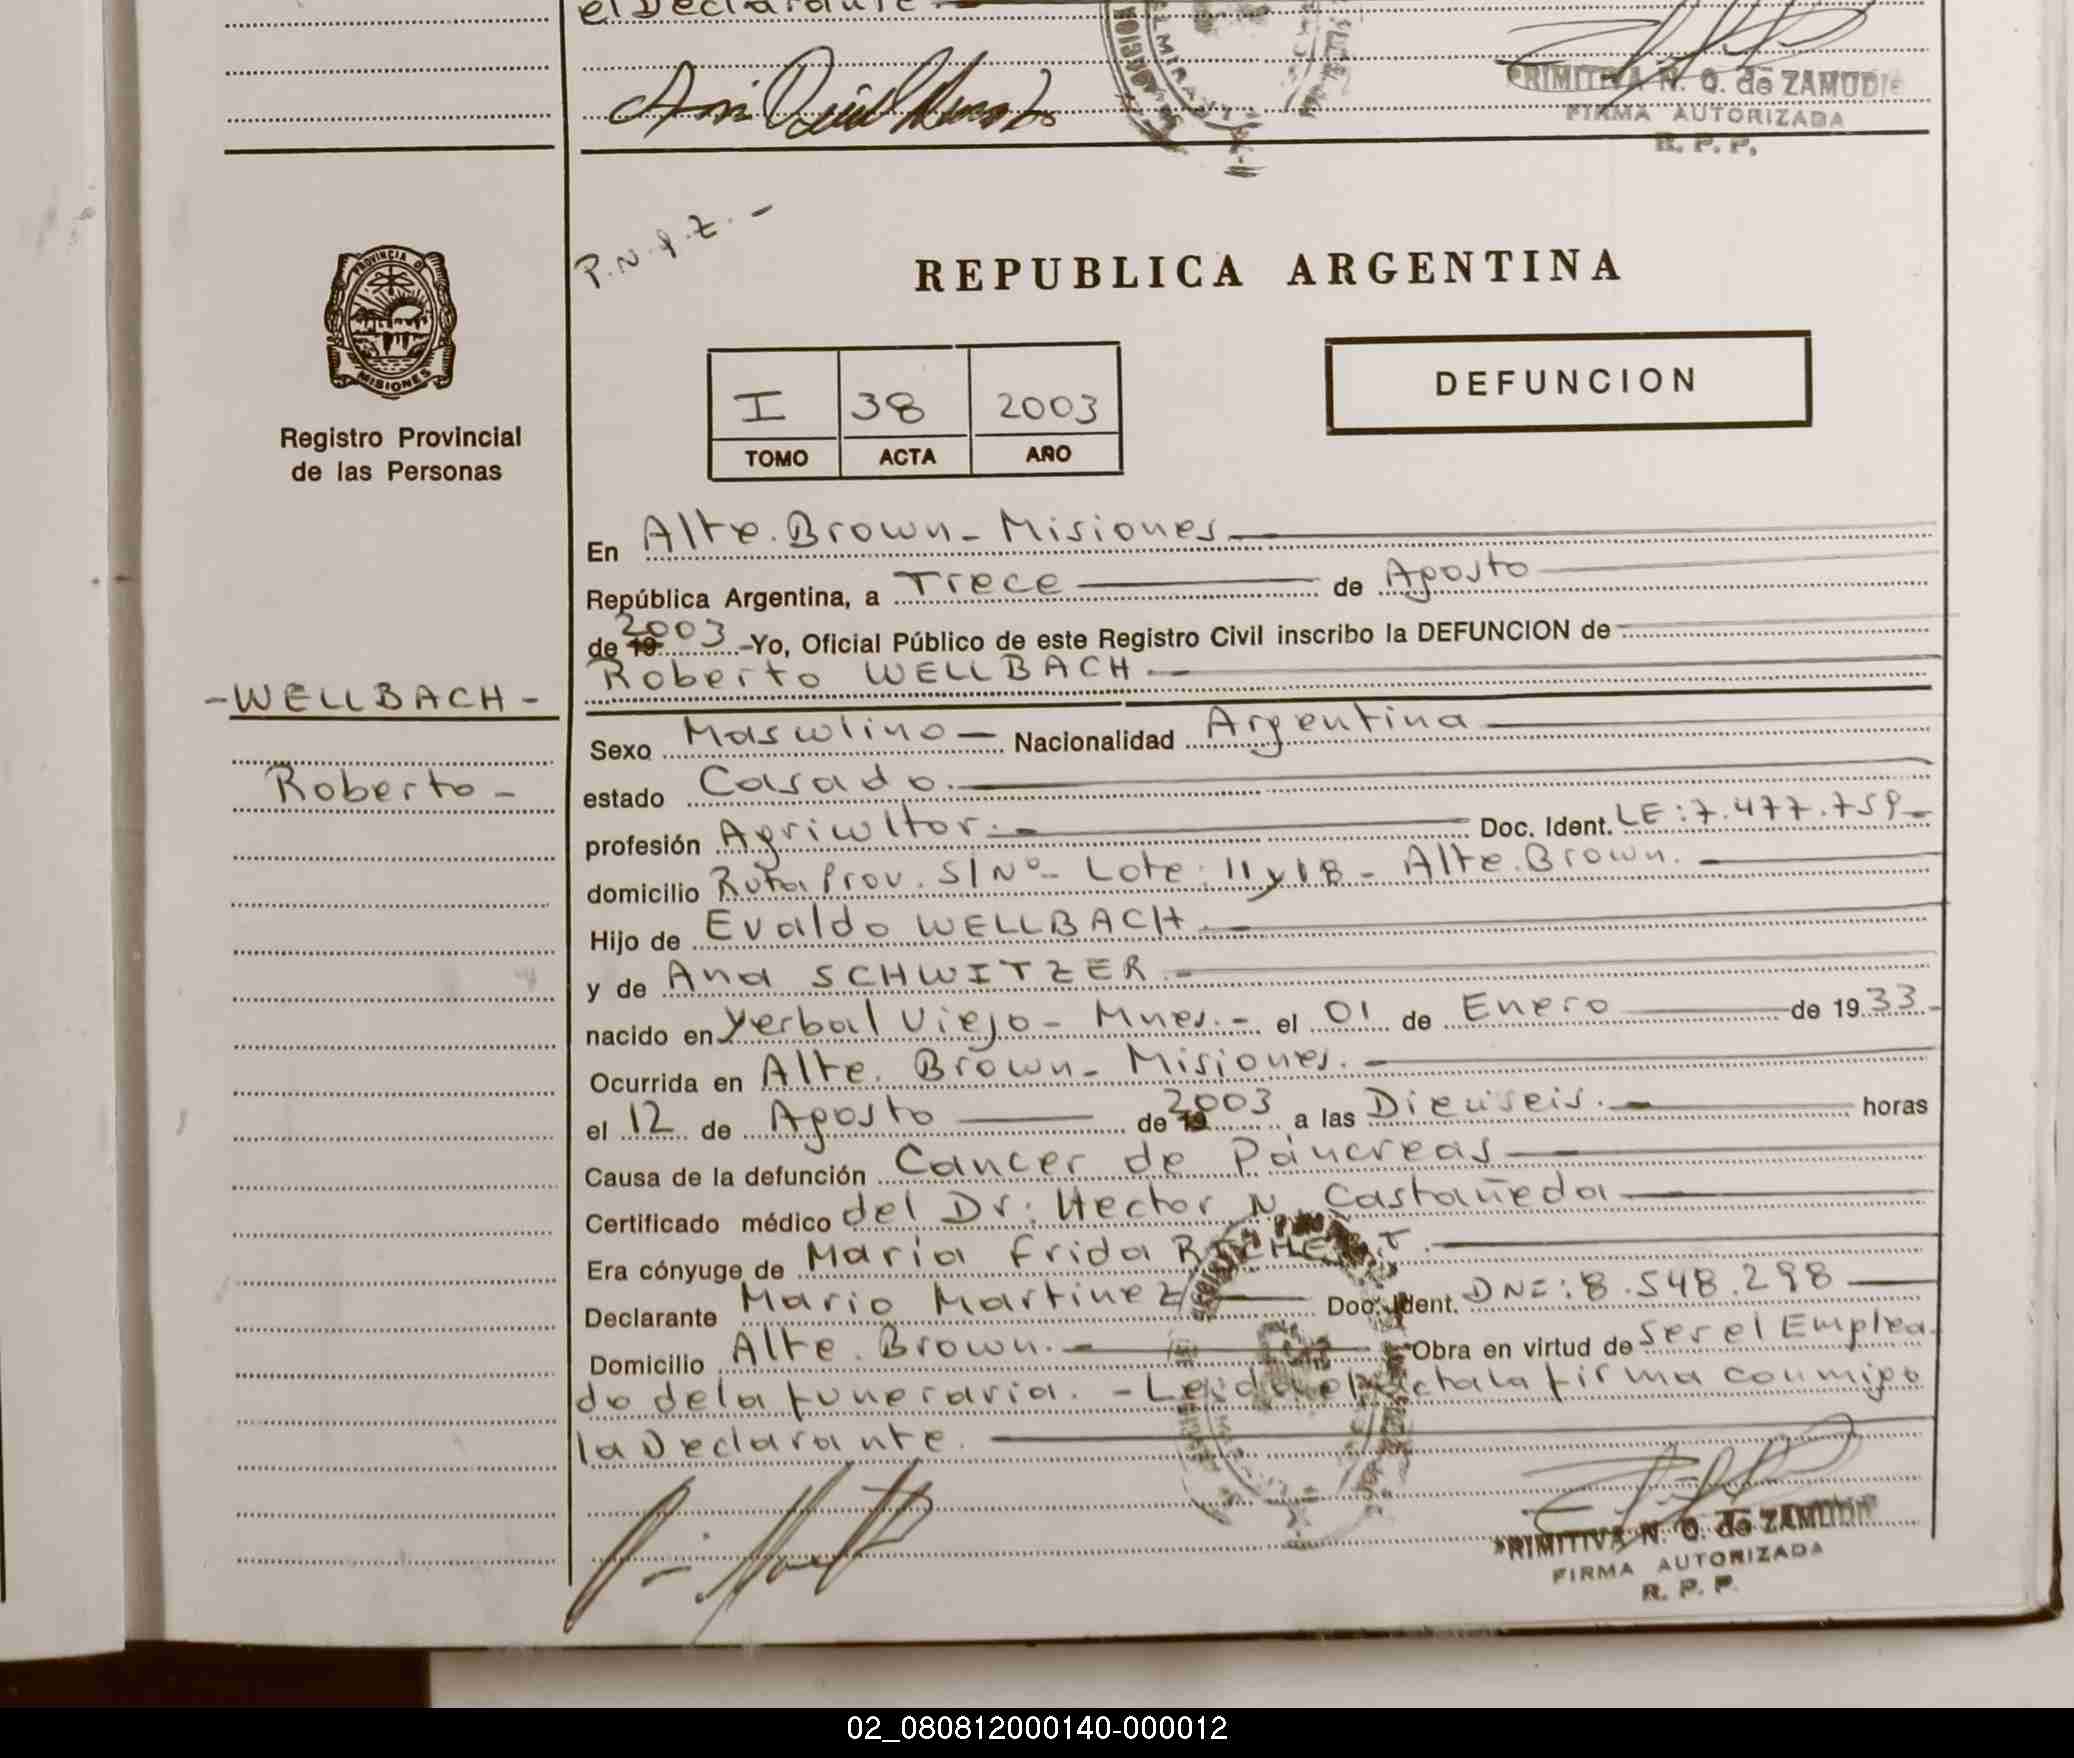 el Declarante
PRIMITIVA N. Q. de ZAMUDIO
FIRMA AUTORIZADA
R. P. P.
PROVINCIA DE
MISIONES
Registro Provincial
de las Personas
REPUBLICA ARGENTINA
I 38 2003
TOMO ACTA AÑO
DEFUNCION
En Alte. Brown - Misiones
República Argentina, a Trece de Agosto
de 19 2003 -Yo, Oficial Público de este Registro Civil inscribo la DEFUNCION de
Roberto WELLBACH
- WELLBACH -
Roberto -
Sexo Masculino Nacionalidad Argentina
estado Casado.
profesión Agricultor. Doc. Ident. LE: 7.477.759
domicilio Ruta Prov. S/Nº - Lote: 11 y 18 - Alte. Brown.
Hijo de Evaldo WELLBACH
y de Ana SCHWITZER
nacido en Yerbal Viejo - Mnes. - el 01 de Enero de 19 33
Ocurrida en Alte. Brown - Misiones.
el 12 de Agosto de 19 2003 a las Dieciseis. horas
Causa de la defunción Cancer de Páncreas
Certificado médico del Dr: Hector N. Castañeda
Era cónyuge de Maria Frida
Declarante Mario Martinez Doc. Ident. DNI: 8.548.298
Domicilio Alte. Brown. Obra en virtud de ser el Emplea
do de la funeraria. - Leida el Acta la firma conmigo
la Declarante.
PRIMITIVA N. Q. de ZAMUDIO
FIRMA AUTORIZADA
R. P. P.
02_080812000140-000012